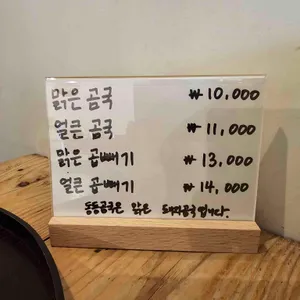 맑은 곰국 ₩ 10,000
얼큰 곰국 ₩ 11,000
맑은 곱빼기 ₩ 13,000
얼큰 곱빼기 ₩ 14,000
동동곰국은 맑은 돼지곰국입니다.